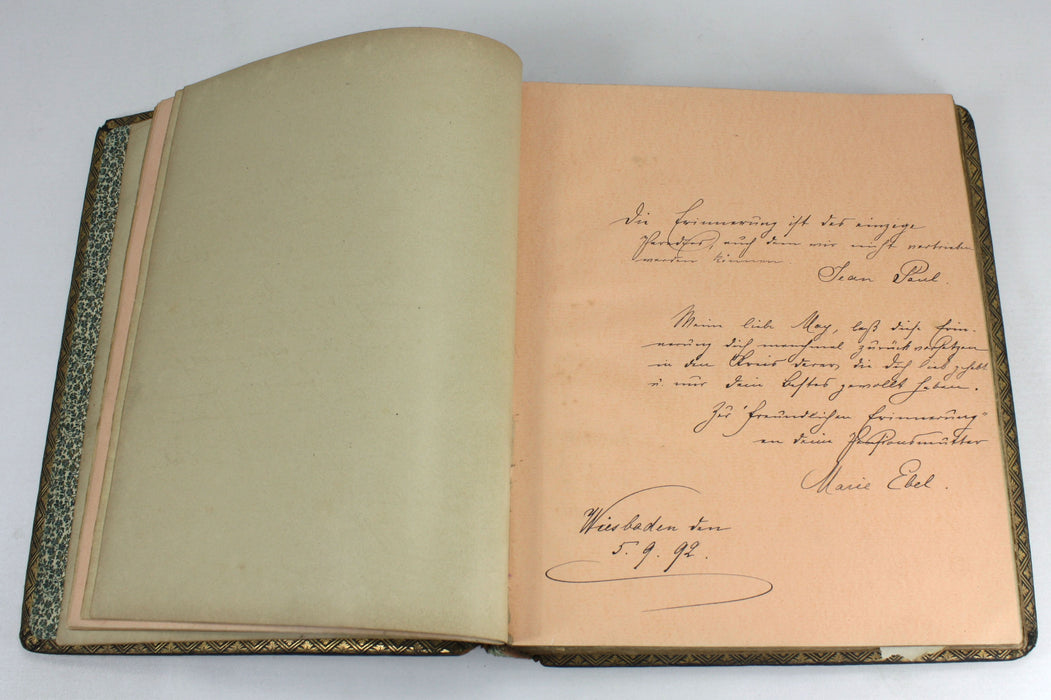 Die Erinnerung ist das einzige
Paradies, aus dem wir nicht vertrieben
werden können
Jean Paul.
Meine liebe May, laß diese Erin-
nerung dich manchmal zurückversetzen
in den Kreis derer, die dich lieb gehabt
u. nur dein Bestes gewollt haben.
Zur "freundlichen Erinnerung"
an deine Pensionsmutter
Marie Ebel.
Wiesbaden den
5. 9. 92.